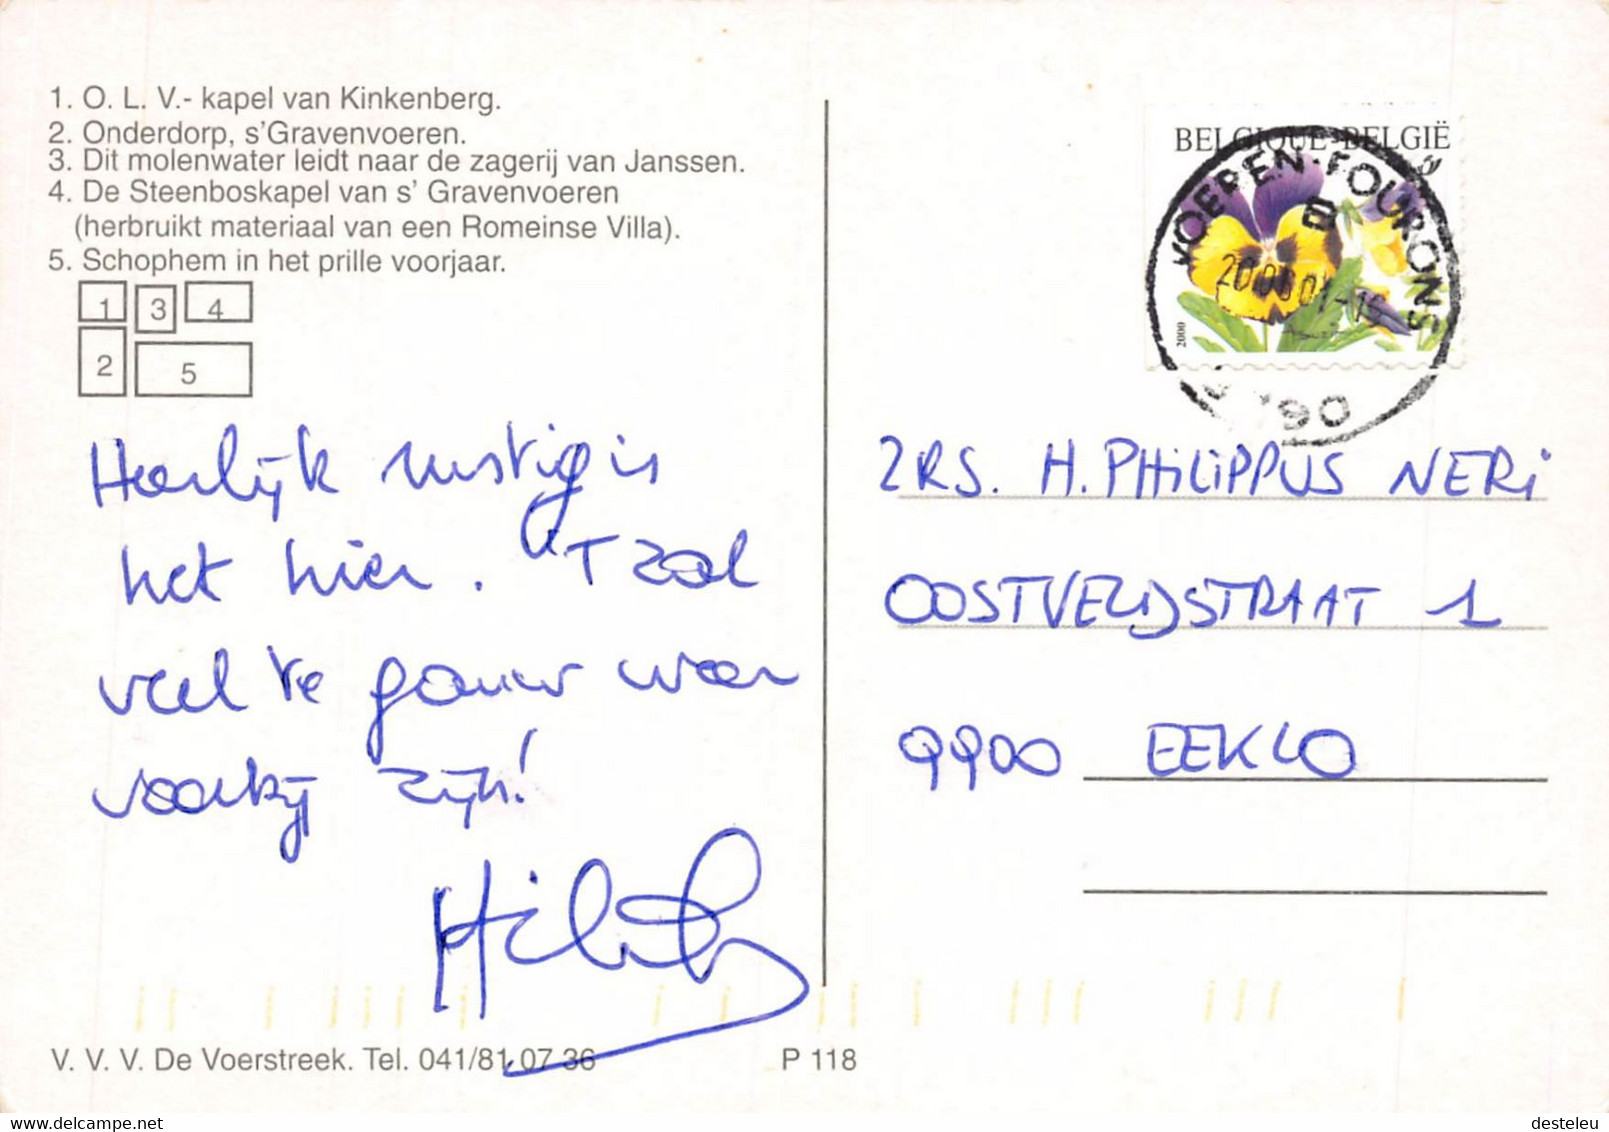 1. O. L. V.- kapel van Kinkenberg.
2. Onderdorp, s'Gravenvoeren.
3. Dit molenwater leidt naar de zagerij van Janssen.
4. De Steenboskapel van s' Gravenvoeren
(herbruikt materiaal van een Romeinse Villa).
5. Schophem in het prille voorjaar.
1 3 4
2 5
Heerlijk rustig is
het hier. 'T zal
veel te gauw weer
voorbij zijn!
BELGIQUE-BELGIË
VOEREN-FOURONS
B
2000
ZRS. H. PHILIPPUS NERI
OOSTVELDSTRAAT 1
9900 EEKLO
V. V. V. De Voerstreek. Tel. 041/81.07.36
P 118
delcampe.net
desteleu